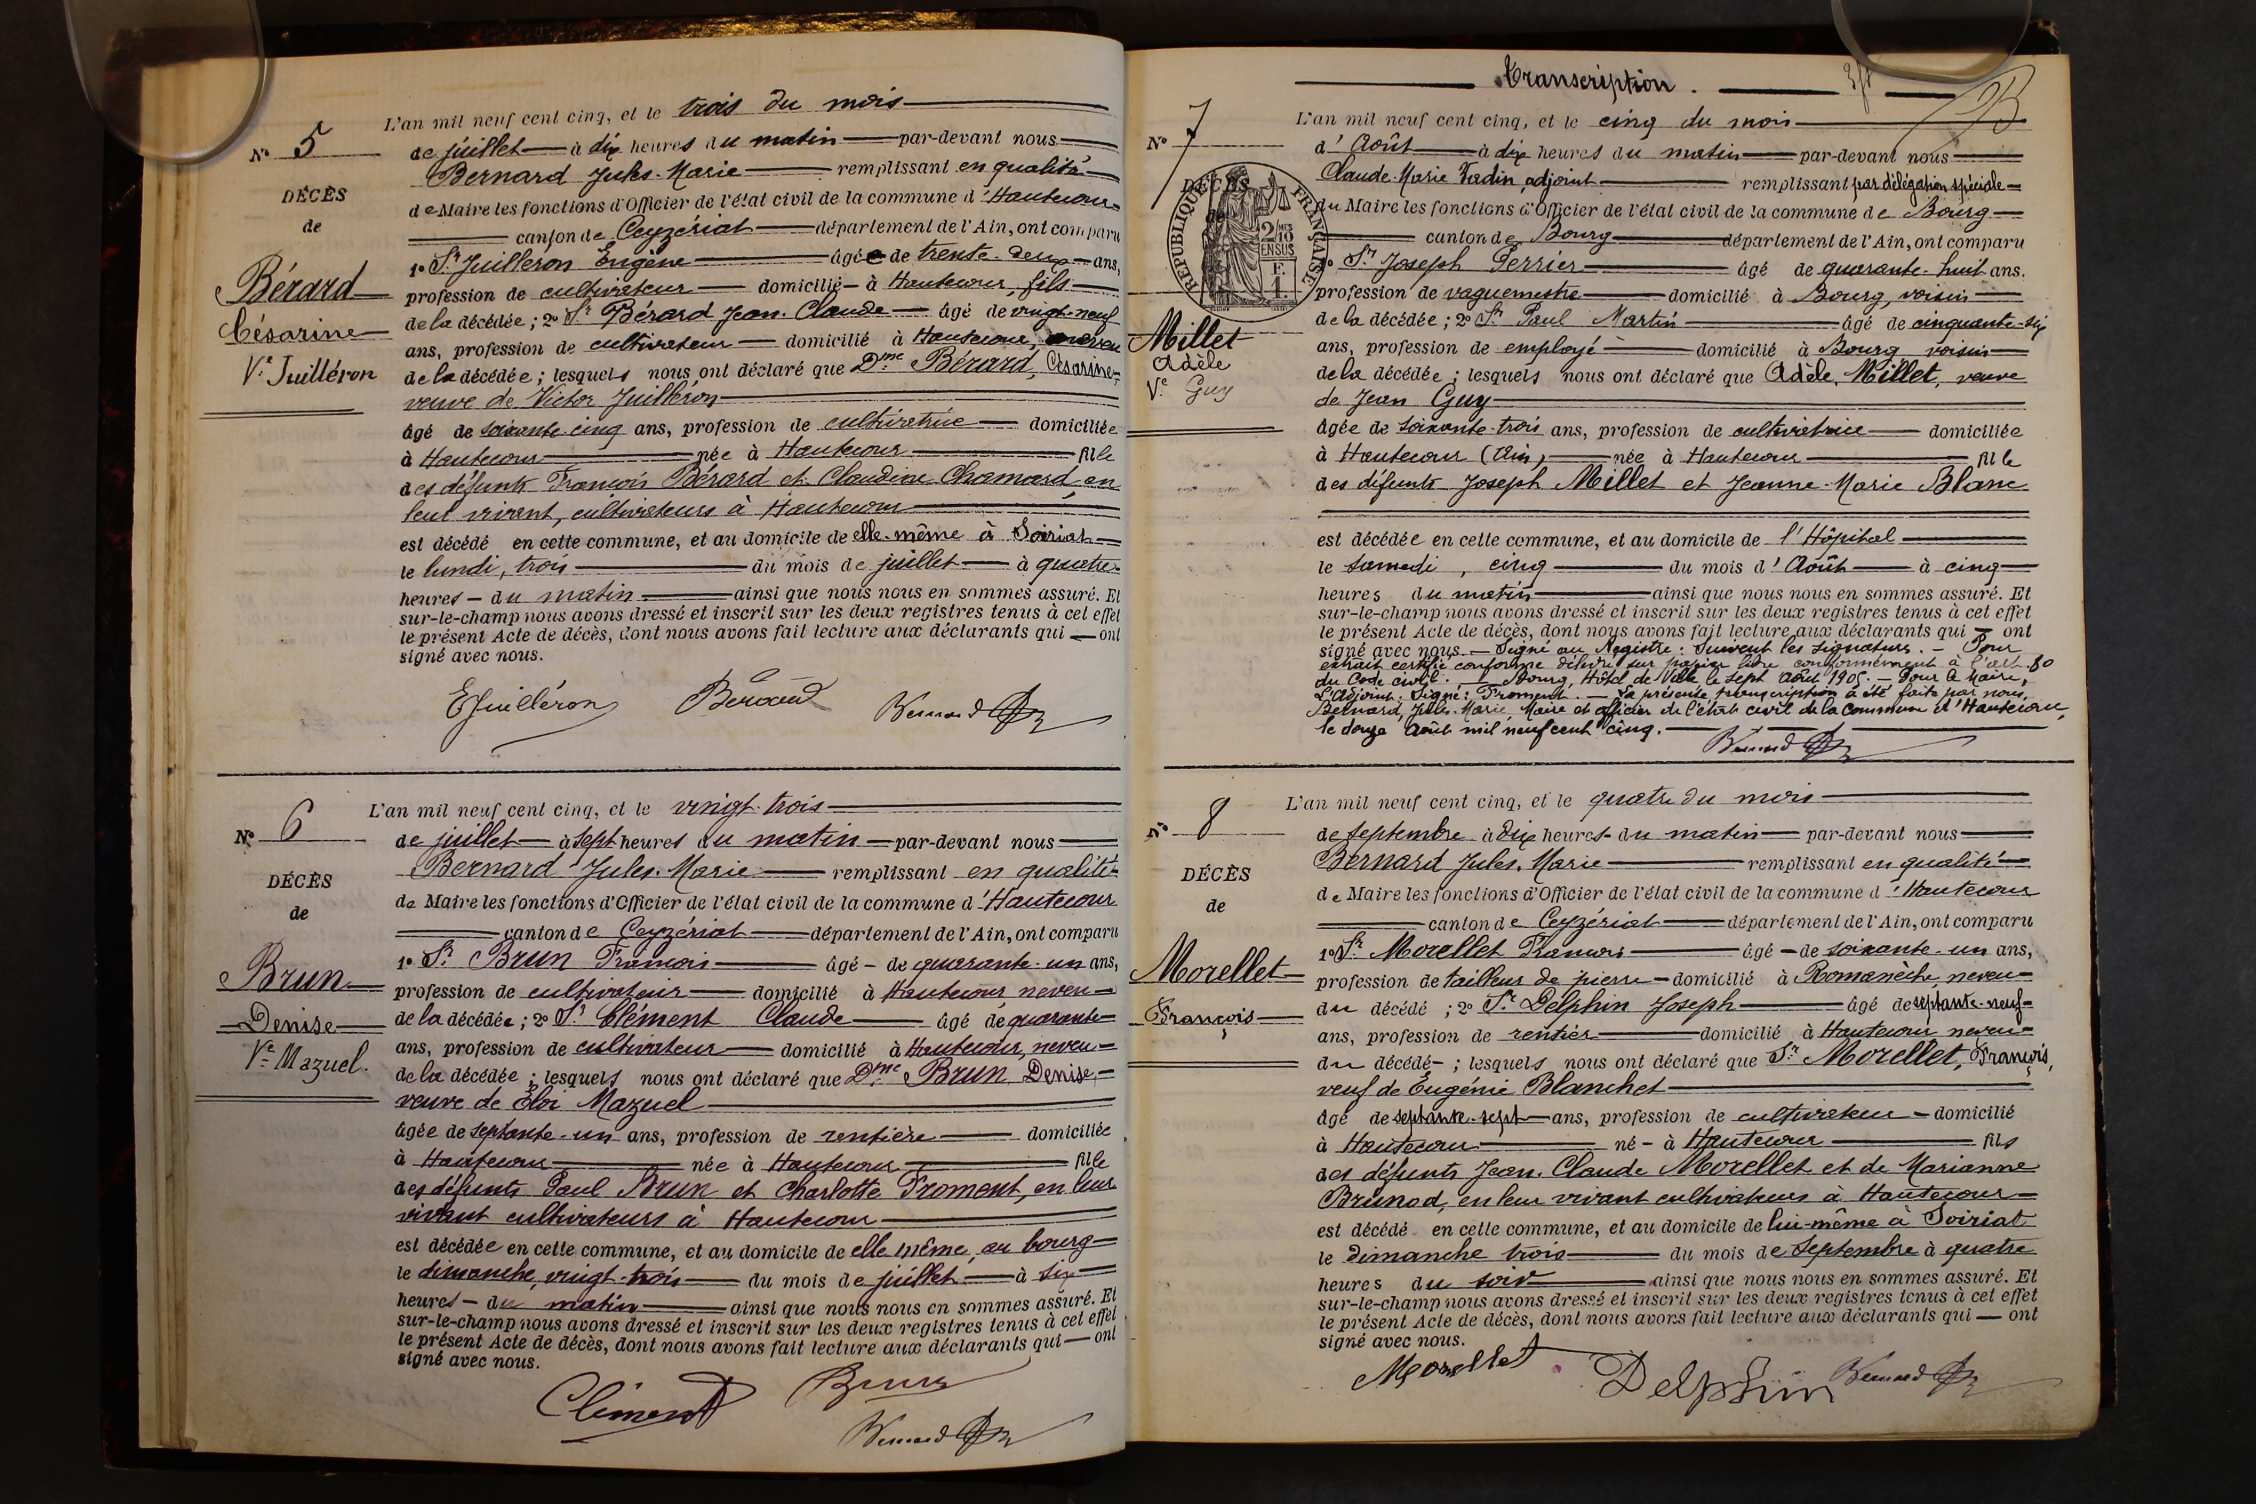 L'an mil neuf cent cinq, et le trois du mois
Nº 5
de juillet à dix heures du matin par-devant nous
Bernard Jules-Marie remplissant en qualité
DÉCÈS
de Maire les fonctions d'Officier de l'état civil de la commune d'Hautecour
de
canton de Ceyzériat département de l'Ain, ont comparu
1º Sr Juilleron Eugène âgé de trente-deux ans,
Bérard
profession de cultivateur domicilié à Hautecour, fils
Césarine
de la décédée ; 2º Sr Bérard Jean-Claude âgé de vingt-neuf
ans, profession de cultivateur domicilié à Hautecour, neveu
Ve Juilléron
de la décédée ; lesquels nous ont déclaré que Dme Bérard, Césarine,
veuve de Victor Juilléron
âgé de soixante-cinq ans, profession de cultivatrice domiciliée
à Hautecour née à Hautecour fille
des défunts François Bérard et Claudine Chamard, en
leur vivant, cultivateurs à Hautecour
est décédé en cette commune, et au domicile de elle-même à Soiriat
le lundi, trois du mois de juillet à quatre
heures du matin ainsi que nous nous en sommes assuré. Et
sur-le-champ nous avons dressé et inscrit sur les deux registres tenus à cet effet
le présent Acte de décès, dont nous avons fait lecture aux déclarants qui ont
signé avec nous.
EJuilléron Bérard Bernard
L'an mil neuf cent cinq, et le vingt-trois
Nº 6
de juillet à sept heures du matin par-devant nous
Bernard Jules-Marie remplissant en qualité
DÉCÈS
de Maire les fonctions d'Officier de l'état civil de la commune d'Hautecour
de
canton de Ceyzériat département de l'Ain, ont comparu
1º Sr Brun François âgé de quarante-un ans,
Brun
profession de cultivateur domicilié à Hautecour, neveu
Denise
de la décédée ; 2º Sr Clément Claude âgé de quarante
ans, profession de cultivateur domicilié à Hautecour, neveu
Ve Mazuel.
de la décédée ; lesquels nous ont déclaré que Dme Brun, Denise,
veuve de Éloi Mazuel
âgée de septante-un ans, profession de rentière domiciliée
à Hautecour née à Hautecour fille
des défunts Paul Brun et Charlotte Froment, en leur
vivant cultivateurs à Hautecour
est décédée en cette commune, et au domicile de elle même, au bourg
le dimanche, vingt-trois du mois de juillet à six
heures du matin ainsi que nous nous en sommes assuré. Et
sur-le-champ nous avons dressé et inscrit sur les deux registres tenus à cet effet
le présent Acte de décès, dont nous avons fait lecture aux déclarants qui ont
signé avec nous.
Clément Brun
Bernard
Transcription.
L'an mil neuf cent cinq, et le cinq du mois
Nº 7
d'Août à dix heures du matin par-devant nous
Claude-Marie Vadin, adjoint remplissant par délégation spéciale
DÉCÈS
du Maire les fonctions d'Officier de l'état civil de la commune de Bourg
de
RÉPUBLIQUE FRANÇAISE
2/10 EN SUS
F. 1.
canton de Bourg département de l'Ain, ont comparu
1º Sr Joseph Perrier âgé de quarante-huit ans.
profession de vaguemestre domicilié à Bourg, voisin
de la décédée ; 2º Sr Paul Martin âgé de cinquante-six
Millet
ans, profession de employé domicilié à Bourg voisin
Adèle
de la décédée ; lesquels nous ont déclaré que Adèle Millet, veuve
Ve Guy
de Jean Guy
âgée de soixante-trois ans, profession de cultivatrice domiciliée
à Hautecour (Ain) née à Hautecour fille
des défunts Joseph Millet et Jeanne-Marie Blanc
est décédée en cette commune, et au domicile de l'Hôpital
le samedi, cinq du mois d'Août à cinq
heures du matin ainsi que nous nous en sommes assuré. Et
sur-le-champ nous avons dressé et inscrit sur les deux registres tenus à cet effet
le présent Acte de décès, dont nous avons fait lecture aux déclarants qui ont
signé avec nous. — Signé au Registre : Suivent les signatures. — Pour
extrait certifié conforme délivré sur papier libre conformément à l'art. 80
du Code civil. — Bourg, Hôtel de Ville le sept août 1905. — Pour le Maire,
L'Adjoint. Signé : Froment. — La présente transcription a été faite par nous,
Bernard, Jules-Marie, Maire et officier de l'état civil de la commune d'Hautecour,
le douze Août mil neuf cent cinq.
Bernard
L'an mil neuf cent cinq, et le quatre du mois
Nº 8
de septembre à dix heures du matin par-devant nous
Bernard Jules-Marie remplissant en qualité
DÉCÈS
de Maire les fonctions d'Officier de l'état civil de la commune d'Hautecour
de
canton de Ceyzériat département de l'Ain, ont comparu
1º Sr Morellet François âgé de soixante-un ans,
Morellet
profession de tailleur de pierre domicilié à Romanèche, neveu
François
du décédé ; 2º Sr Delphin Joseph âgé de septante-neuf
ans, profession de rentier domicilié à Hautecour neveu
du décédé ; lesquels nous ont déclaré que Sr Morellet, François,
veuf de Eugénie Blanchet
âgé de septante-sept ans, profession de cultivateur domicilié
à Hautecour né à Hautecour fils
des défunts Jean-Claude Morellet et de Marianne
Brunod, en leur vivant cultivateurs à Hautecour
est décédé en cette commune, et au domicile de lui-même à Soiriat
le dimanche trois du mois de Septembre à quatre
heures du soir ainsi que nous nous en sommes assuré. Et
sur-le-champ nous avons dressé et inscrit sur les deux registres tenus à cet effet
le présent Acte de décès, dont nous avons fait lecture aux déclarants qui ont
signé avec nous.
Morellet Delphin Bernard